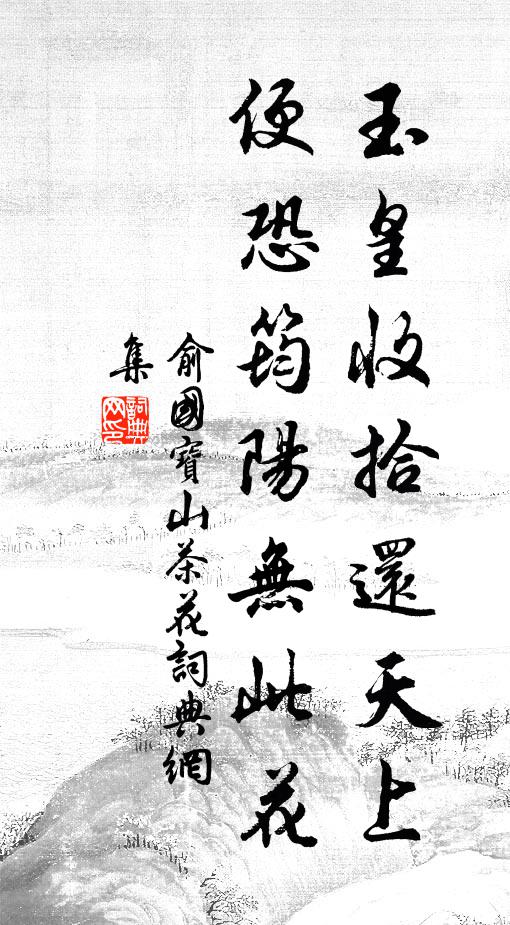 玉皇收拾還天上
便恐筠陽無此花
俞國寶山茶花詞典網
集
詞典網印